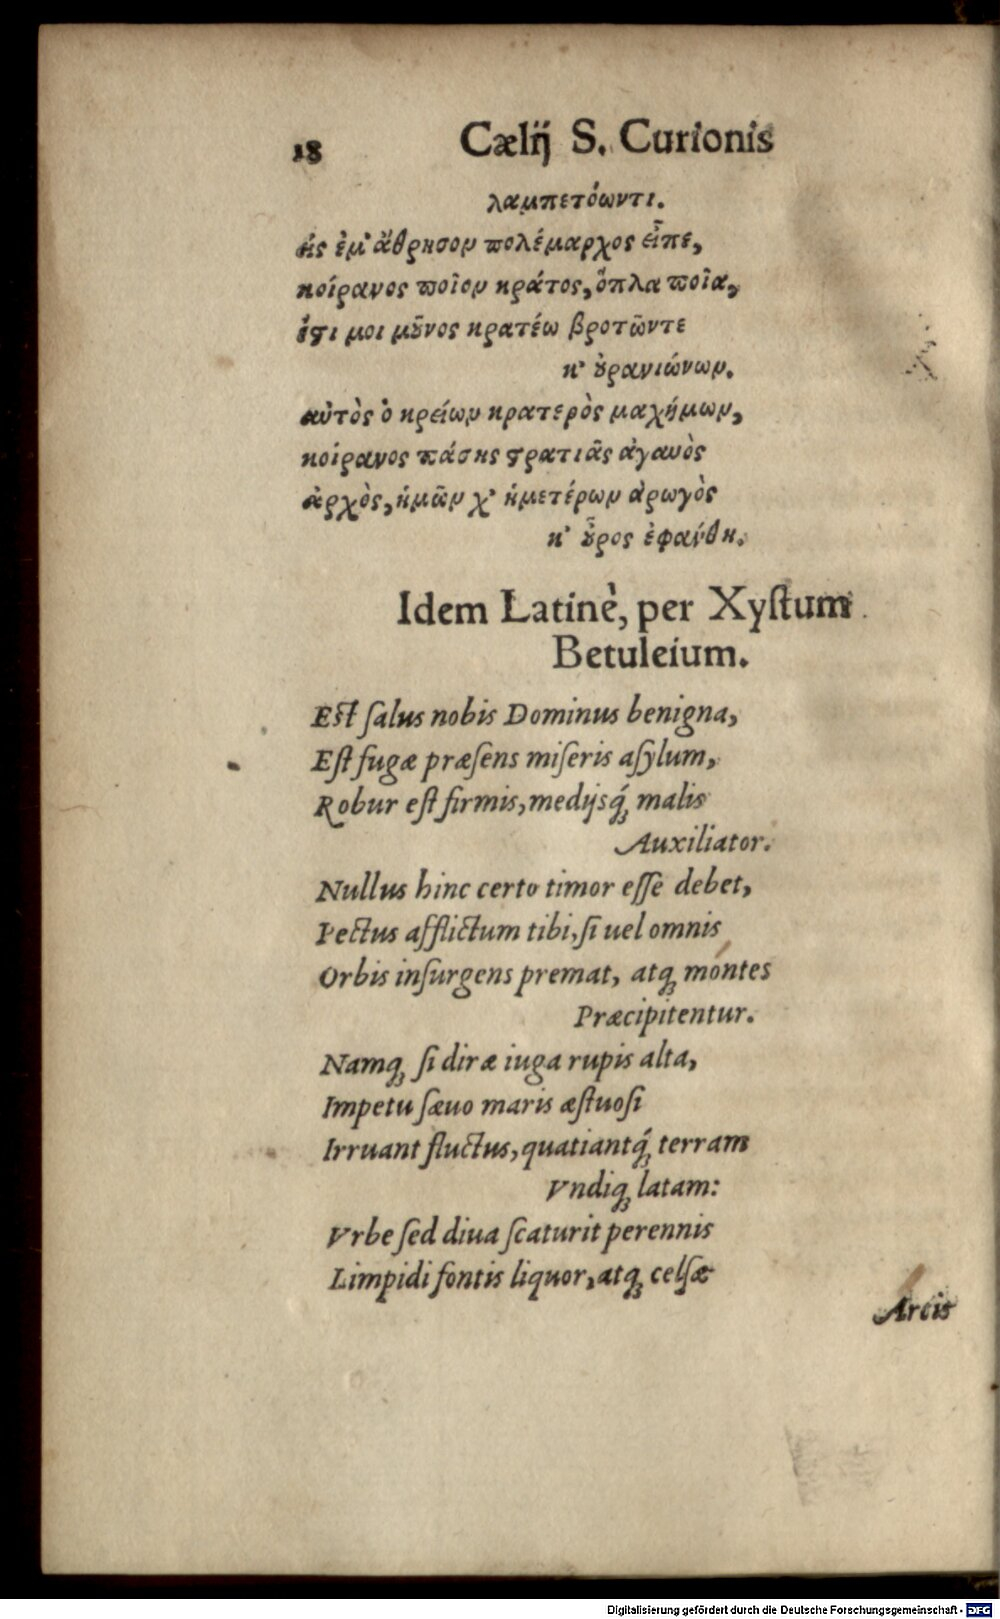 18 Cælij S. Curionis
λαμπετόωντι.
ἠς ἐμ' ἄθρησον πολέμαρχος εἶπέ,
κοίρανος ποῖον κράτος, ὅπλα ποῖα,
ἐστι μοι μοῦνος κρατέω βροτῶντε
κ' οὐρανιώνων.
αὐτὸς ὁ κρείων κρατερὸς μαχήμων,
κοίρανος πάσης στρατιᾶς ἀγαυὸς
ἀρχὸς, ἡμῶν χ' ἡμετέρων ἀρωγὸς
κ' οὖρος ἐφαύθη.
Idem Latinè, per Xystum
Betuleium.
Est salus nobis Dominus benigna,
Est fugæ præsens miseris asylum,
Robur est firmis, medijsq́; malis
Auxiliator.
Nullus hinc certo timor esse debet,
Pectus afflictum tibi, si uel omnis
Orbis insurgens premat, atq; montes
Præcipitentur.
Namq; si diræ iuga rupis alta,
Impetu sæuo maris æstuosi
Irruant fluctus, quatiantq́; terram
Vndiq; latam:
Vrbe sed diua scaturit perennis
Limpidi fontis liquor, atq; celsæ
Arcis
Digitalisierung gefördert durch die Deutsche Forschungsgemeinschaft - DFG